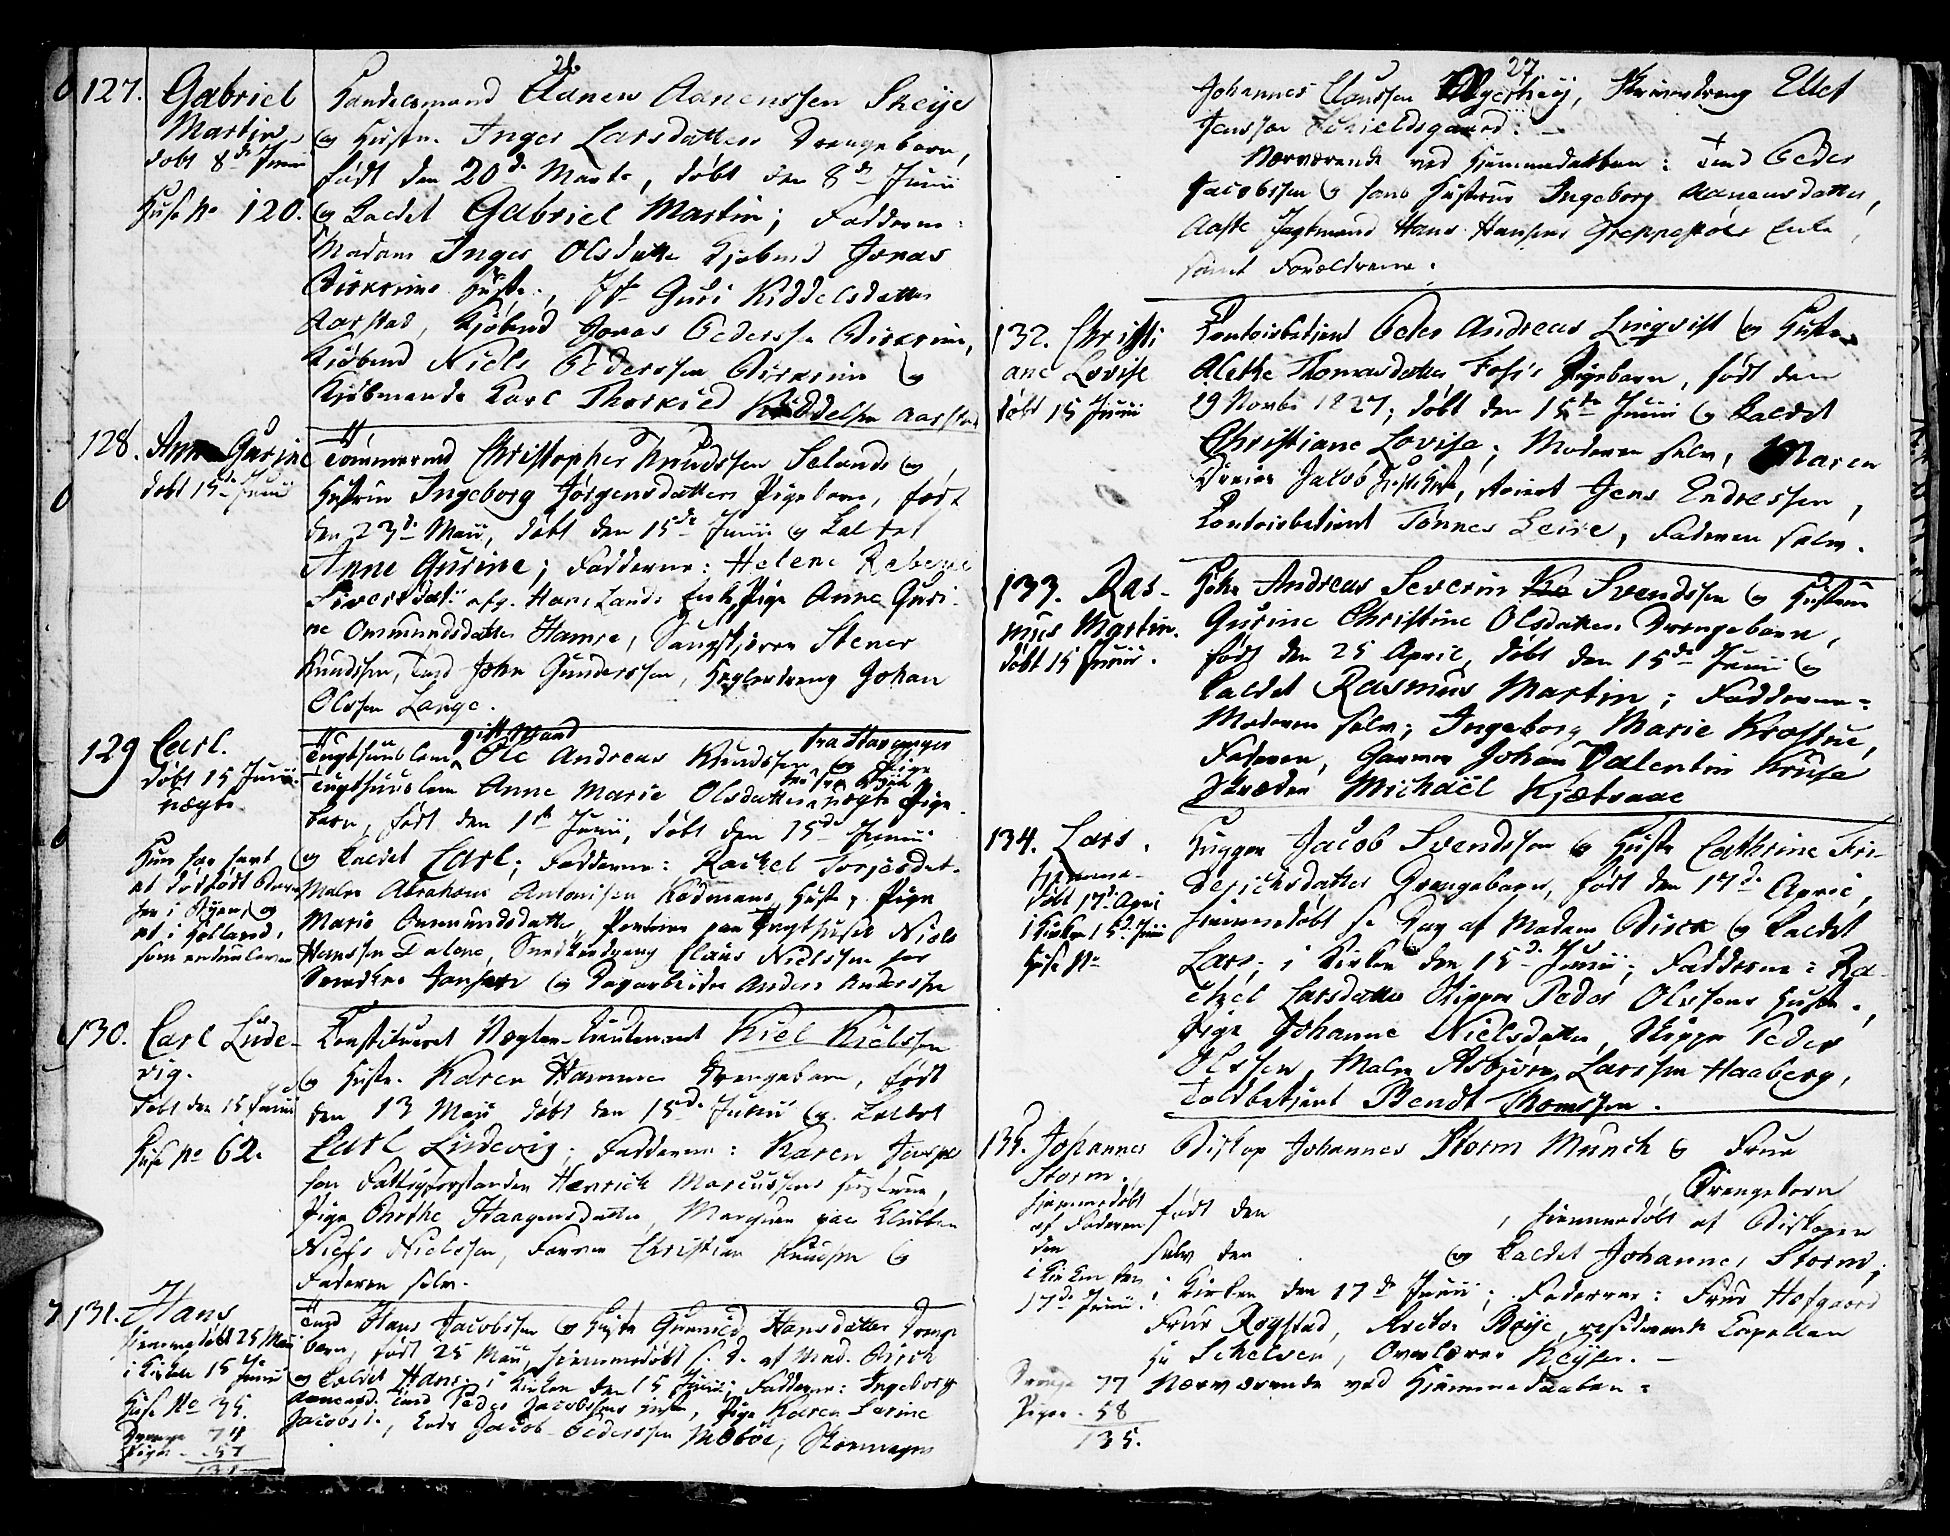 26.
127. Gabriel
Martin
døbt 8de Junii
Huse No 120.
Handelsmand Aanen Aanenssen Skeije
og Hustr. Inger Larsdatters Drengebarn,
født den 20de Marts, døbt den 8de Junii
og kaldet Gabriel Martin; Fadderne:
Madam Inger Olsdatter Kjøbmd Jonas
Birkrims Hustr., Jfr Guri Kiddelsdatter
Aarstad, Kjøbmd Jonas Pederssen Birkrim,
Kiøbmd Niels Pederssen Birkrim og
Kiøbmands Karl Thorkild Kiddelsen Aarstad
128. Anne Gurine
døbt 15de Junii
Tømmermd Christopher Knudssen Selands og
Hustrue Ingeborg Jørgensdatters Pigebarn, født
den 23de Maii, døbt den 15de Junii og kaldet
Anne Gurine; Fadderne: Helene Rebekke
Sivertsdatt. afg. Hans Lands Enke, Pige Anne Guri-
ne Ommundsdatter Hamre, Stener
Knudssen, Tmd John Gunderssen, Johan
Olssen Lange.
129 Carl.
døbt 15 Junii.
uægte
Hun har havt
et dødfødt Barn
før i Byen, og
et i Holland,
som endnu lever
gift Mand fra Stavanger
Tugthuuslem Ole Andreas Knudssen og Pige
Tugthuuslem Anne Marie Olsdatters uægte Pige
barn, født den 1ste Junii, døbt den 15de Junii
og kaldet Carl; Fadderne: Rachel Torjesdat-
Maler Abrahams Antonisen Rødmans Hustr, Pige
Marie Ommundsdatter, Portner paa Tugthuset Niels
Hanssen Dalene, Smededreng Claus Nielssen hos
Jansen og Dagarbeider Anders Anderssen
130. Carl Lude-
vig.
døbt den 15 Junii
Huse No 62.
Constitueret Vægter-Lieutenant Kiel Kielssen
og Hustr. Karen Hammer Drengebarn, født
den 13 Maii døbt den 15de Junii og kaldet
Carl Ludevig; Fadderne: Karen
Fattigforstander Henrich Marcussens Hustrue,
Pige Berthe Haagensdatter, Marqueur paa Klubben
Niels Nielssen, Farver Christian Knudsen og
Faderen selv.
131. Hans
hiemmedøbt 25 Maii
i Kirken 15 Junii
Huse No 35.
Drenge 74
Piger 57
131
Tmd Hans Jacobssen og Hustr Gunnild Hansdatters Drenge
barn, født 25 Maii, hiemmedøbt s. D. af Mad. Birch
og kaldet Hans; i Kirken den 15 Junii; Fadderne: Ingeborg
Aanensd. Tmd Peder Jacobssens Hustr, Pige Karen Serine
Jacobsd., Jacob Pederssen Møboe,
27
Johannes Claussen, Skrivedreng Ellef
Jenssen Schieldsgaard. –
Nærværende ved Hjemmedaaben: Tmd Peder
Jacobssen og hans Hustrue Ingeborg Aanensdatter,
Aaste Jagtmand Hans Hansens Enke,
samt Forældrene.
132. Christi
ane Lovise
døbt 15 Junii
Contoirbetjent Peder Andreas Linqvist og Hustr
Alethe Thomasdatter Foss's Pigebarn, født den
29 Novbr 1827, døbt den 15de Junii og kaldet
Christiane Lovise; Moderen selv, Maren
Jacob, Jens Endressen,
Contoirbetjent Tønnes Leire, Faderen selv.
133. Ras-
mus Martin.
døbt 15 Junii.
Andreas Severin Svendssen og Hustrue
Gurine Christine Olsdatters Drengebarn,
født den 25 April, døbt den 15de Junii og
kaldet Rasmus Martin; Fadderne:
Moderen selv, Ingeborg Marie Krossnie,
Faderen, Garver Johan Valentin Kruse
Skræder Michäel Kjætraae
134. Lars.
hjemme-
døbt 17de April
i Kirken 15de Junii
Huse No
Hugger Jacob Svendssen og Hustr Cathrine Fri-
derichsdatters Drengebarn, født den 17de April,
hiemmedøbt s. Dag af Madam Birch og kaldet
Lars; i Kirken den 15de Junii; Fadderne: Ra-
chel Larsdatter Skipper Peder Olssens Hustr.,
Pige Johanne Nielsdatter, Skipper Peder
Olssen, Maler Asbjørn Larssen Haaberg,
Toldbetjent Bendt Thomssen.
135. Johannes
Storm.
hiemmedøbt
af Faderen
den
i Kirken den
17de Junii.
Biskop Johannes Storm Munch og Frue
Drengebarn
født den , hiemmedøbt af Biskopen
selv den og kaldet Johannes Storm;
i Kirken den 17de Junii; Fadderne: Frue Hofgaard
Frue Rogstad, Rector Boije, residerende Capellan
Hr Schelven, Overlærer Keyser. –
Nærværende ved Hjemmedaaben:
Drenge 77
Piger. 58
135.